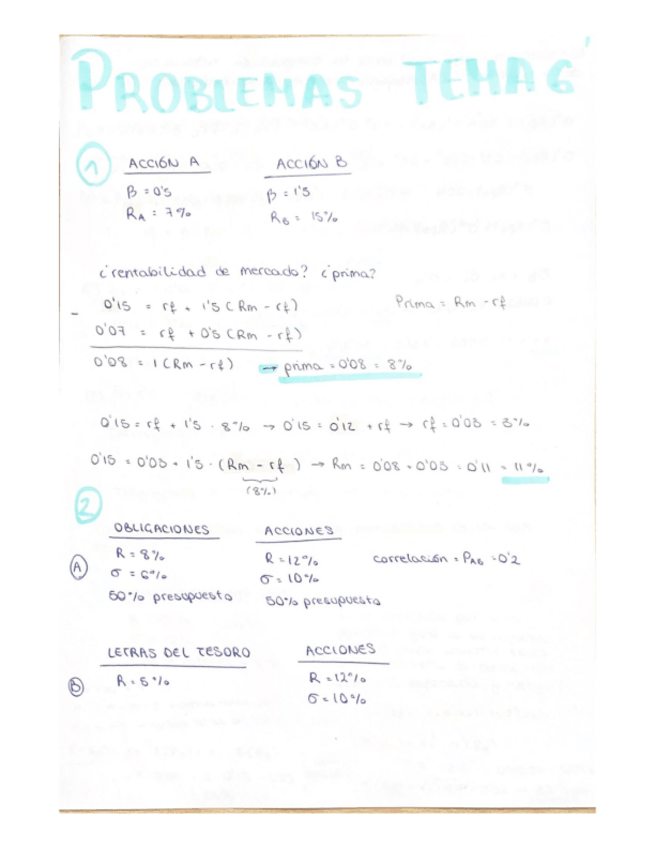 PROBLEMAS TEMA 6
1
ACCIÓN A ACCIÓN B
β = 0'5 β = 1'5
RA = 7% RB = 15%
¿rentabilidad de mercado? ¿prima?
0'15 = rf + 1'5 (Rm - rf) Prima = Rm - rf
- 0'07 = rf + 0'5 (Rm - rf)
0'08 = 1 (Rm - rf) → prima = 0'08 = 8%
0'15 = rf + 1'5 · 8% → 0'15 = 0'12 + rf → rf = 0'03 = 3%
0'15 = 0'03 + 1'5 · (Rm - rf) → Rm = 0'08 + 0'03 = 0'11 = 11%
(8%)
2
OBLIGACIONES ACCIONES
A R = 8% R = 12% correlación = PAB = 0'2
σ = 6% σ = 10%
50% presupuesto 50% presupuesto
LETRAS DEL TESORO ACCIONES
B R = 5% R = 12%
σ = 10%